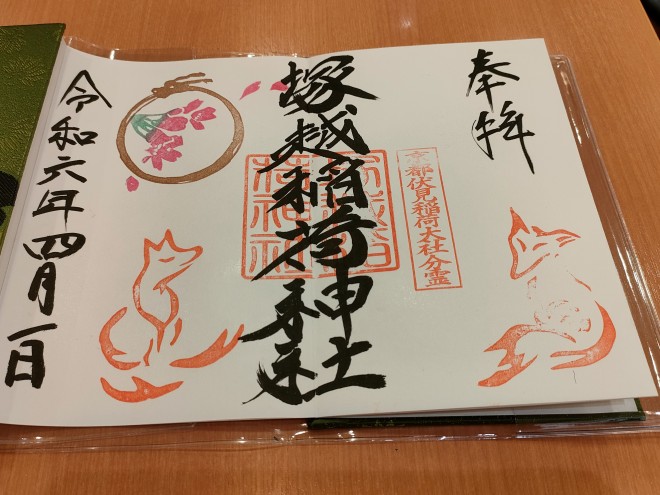 奉拝
京都伏見稲荷大社分霊
塚越稲荷神社
塚越稲
荷神社
令和六年四月一日